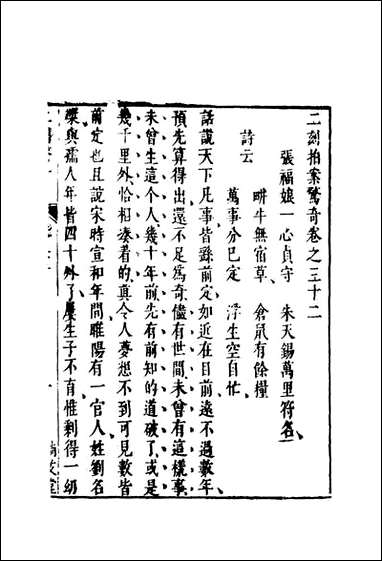 二刻拍案驚奇卷之三十二
張福娘一心貞守　朱天錫萬里符名
詩云
耕牛無宿草　倉鼠有餘糧
萬事分已定　浮生空自忙
話說天下凡事皆繇前定如近在目前遠不過數年
預先算得出還不足爲奇儘有世間未曾有這樣事
未曾生這个人幾十年前先有前知的道破了或是
幾千里外恰相湊着的真令人夢想不到可見數皆
前定也且說宋時宣和年間睢陽有一官人姓劉名
槩與孺人年皆四十外了屢生子不育惟剩得一幼